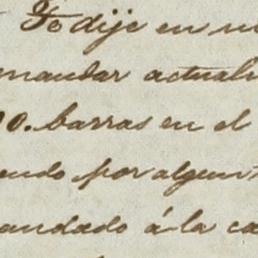 Te dije en mi
mandar actualm
00. barras en el
endo por algun
andado á la ca